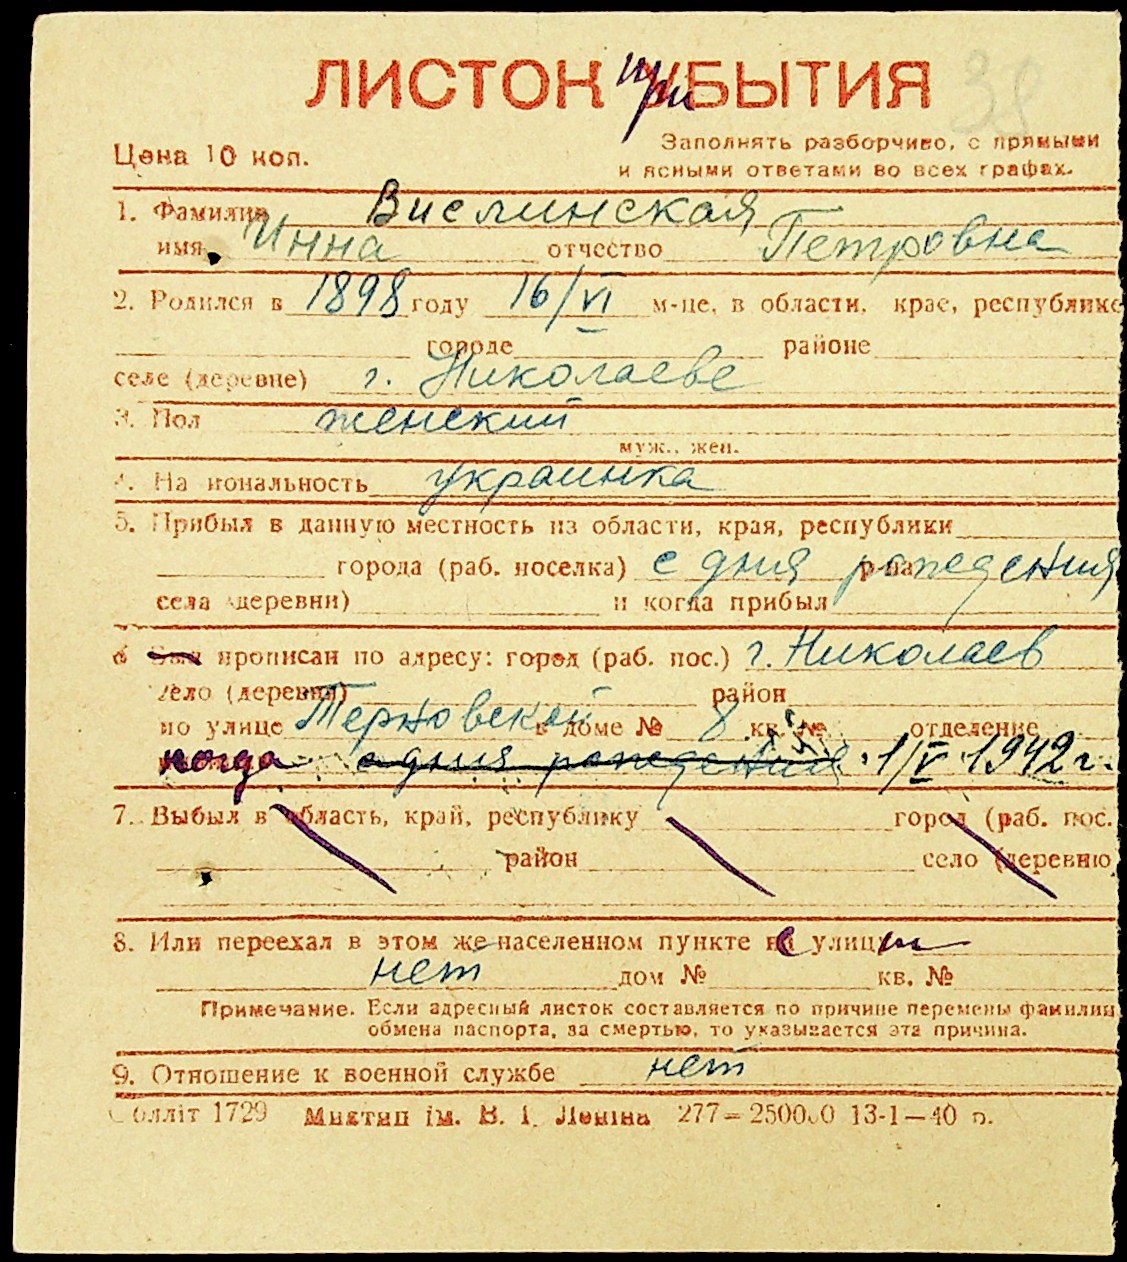 ЛИСТОК при УБЫТИЯ
38
Цена 10 коп.
Заполнять разборчиво, с прямыми
и ясными ответами во всех графах.
1. Фамилия Вислинская
имя Инна отчество Петровна
2. Родился в 1898 году 16/VI м-це, в области, крае, республике
городе районе
селе (деревне) г. Николаеве
3. Пол женский
муж., жен.
4. На иональность украинка
5. Прибыл в данную местность из области, края, республики
города (раб. поселка) с дня рождения р-на
села (деревни) и когда прибыл
6 Был прописан по адресу: город (раб. пос.) г. Николаев
село (деревня) район
по улице Терновской в доме № 8 кв. № отделение
когда с дня рождения 1/V 1942 г.
7. Выбыл в область, край, республику город (раб. пос.
район село (деревню
8. Или переехал в этом же населенном пункте с улицы
нет дом № кв. №
Примечание. Если адресный листок составляется по причине перемены фамилии
обмена паспорта, за смертью, то указывается эта причина.
9. Отношение к военной службе нет
Облліт 1729 Миктип ім. В. І. Леніна 277—250000 13-1—40 р.